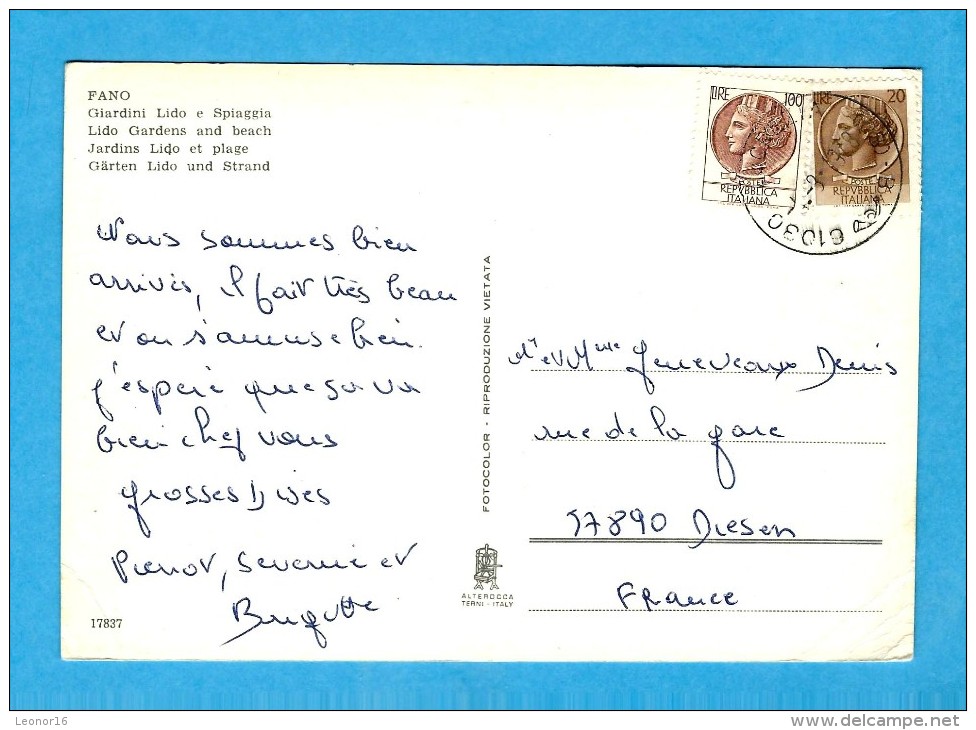 FANO
Giardini Lido e Spiaggia
Lido Gardens and beach
Jardins Lido et plage
Gärten Lido und Strand
Nous sommes bien
arrivés, il fait très beau
et on s'amuse bien.
J'espère que sa va
bien chez vous
grosses bises
Pierrot, Severine et
Brigitte
17837
FOTOCOLOR - RIPRODUZIONE VIETATA
ALTEROCCA
TERNI - ITALY
LIRE 100
POSTE
REPVBBLICA
ITALIANA
LIRE 20
POSTE
REPVBBLICA
ITALIANA
61030
Mr et Mme Geneveaux Denis
rue de la gare
57890 Diesen
France
Leonor16
www.delcampe.net